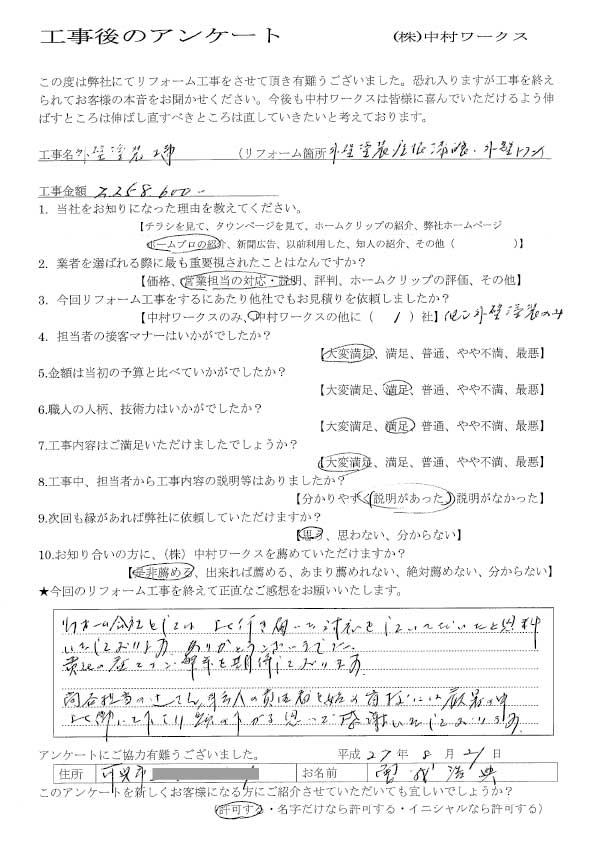 工事後のアンケート (株)中村ワークス
この度は弊社にてリフォーム工事をさせて頂き有難うございました。恐れ入りますが工事を終え
られてお客様の本音をお聞かせください。今後も中村ワークスは皆様に喜んでいただけるよう伸
ばすところは伸ばし直すべきところは直していきたいと考えております。
工事名 外壁塗装工事 (リフォーム箇所 外壁塗装
工事金額 2258600.-
1. 当社をお知りになった理由を教えてください。
【チラシを見て、タウンページを見て、ホームクリップの紹介、弊社ホームページ
ホームプロの紹介、新聞広告、以前利用した、知人の紹介、その他（ ）】
2. 業者を選ばれる際に最も重要視されたことはなんですか？
【価格、営業担当の対応・説明、評判、ホームクリップの評価、その他】
3. 今回リフォーム工事をするにあたり他社でもお見積りを依頼しましたか？
【中村ワークスのみ、中村ワークスの他に（ 1 ）社】 外壁塗装のみ
4. 担当者の接客マナーはいかがでしたか？
【大変満足、満足、普通、やや不満、最悪】
5.金額は当初の予算と比べていかがでしたか？
【大変満足、満足、普通、やや不満、最悪】
6.職人の人柄、技術力はいかがでしたか？
【大変満足、満足、普通、やや不満、最悪】
7.工事内容はご満足いただけましたでしょうか？
【大変満足、満足、普通、やや不満、最悪】
8.工事中、担当者から工事内容の説明等はありましたか？
【分かりやすく説明があった、説明がなかった】
9.次回も縁があれば弊社に依頼していただけますか？
【思う、思わない、分からない】
10.お知り合いの方に、（株）中村ワークスを薦めていただけますか？
【是非薦める、出来れば薦める、あまり薦めれない、絶対薦めない、分からない】
★今回のリフォーム工事を終えて正直なご感想をお願いいたします。
リフォーム会社としては よく行き届いた対応をしていただいたと
いたしております。ありがとうございました。
を期待しております
感謝いたしております
アンケートにご協力有難うございました。 平成 27 年 8 月 21 日
住所 お名前
このアンケートを新しくお客様になる方にご紹介させていただいても宜しいでしょうか？
(許可する・名字だけなら許可する・イニシャルなら許可する)